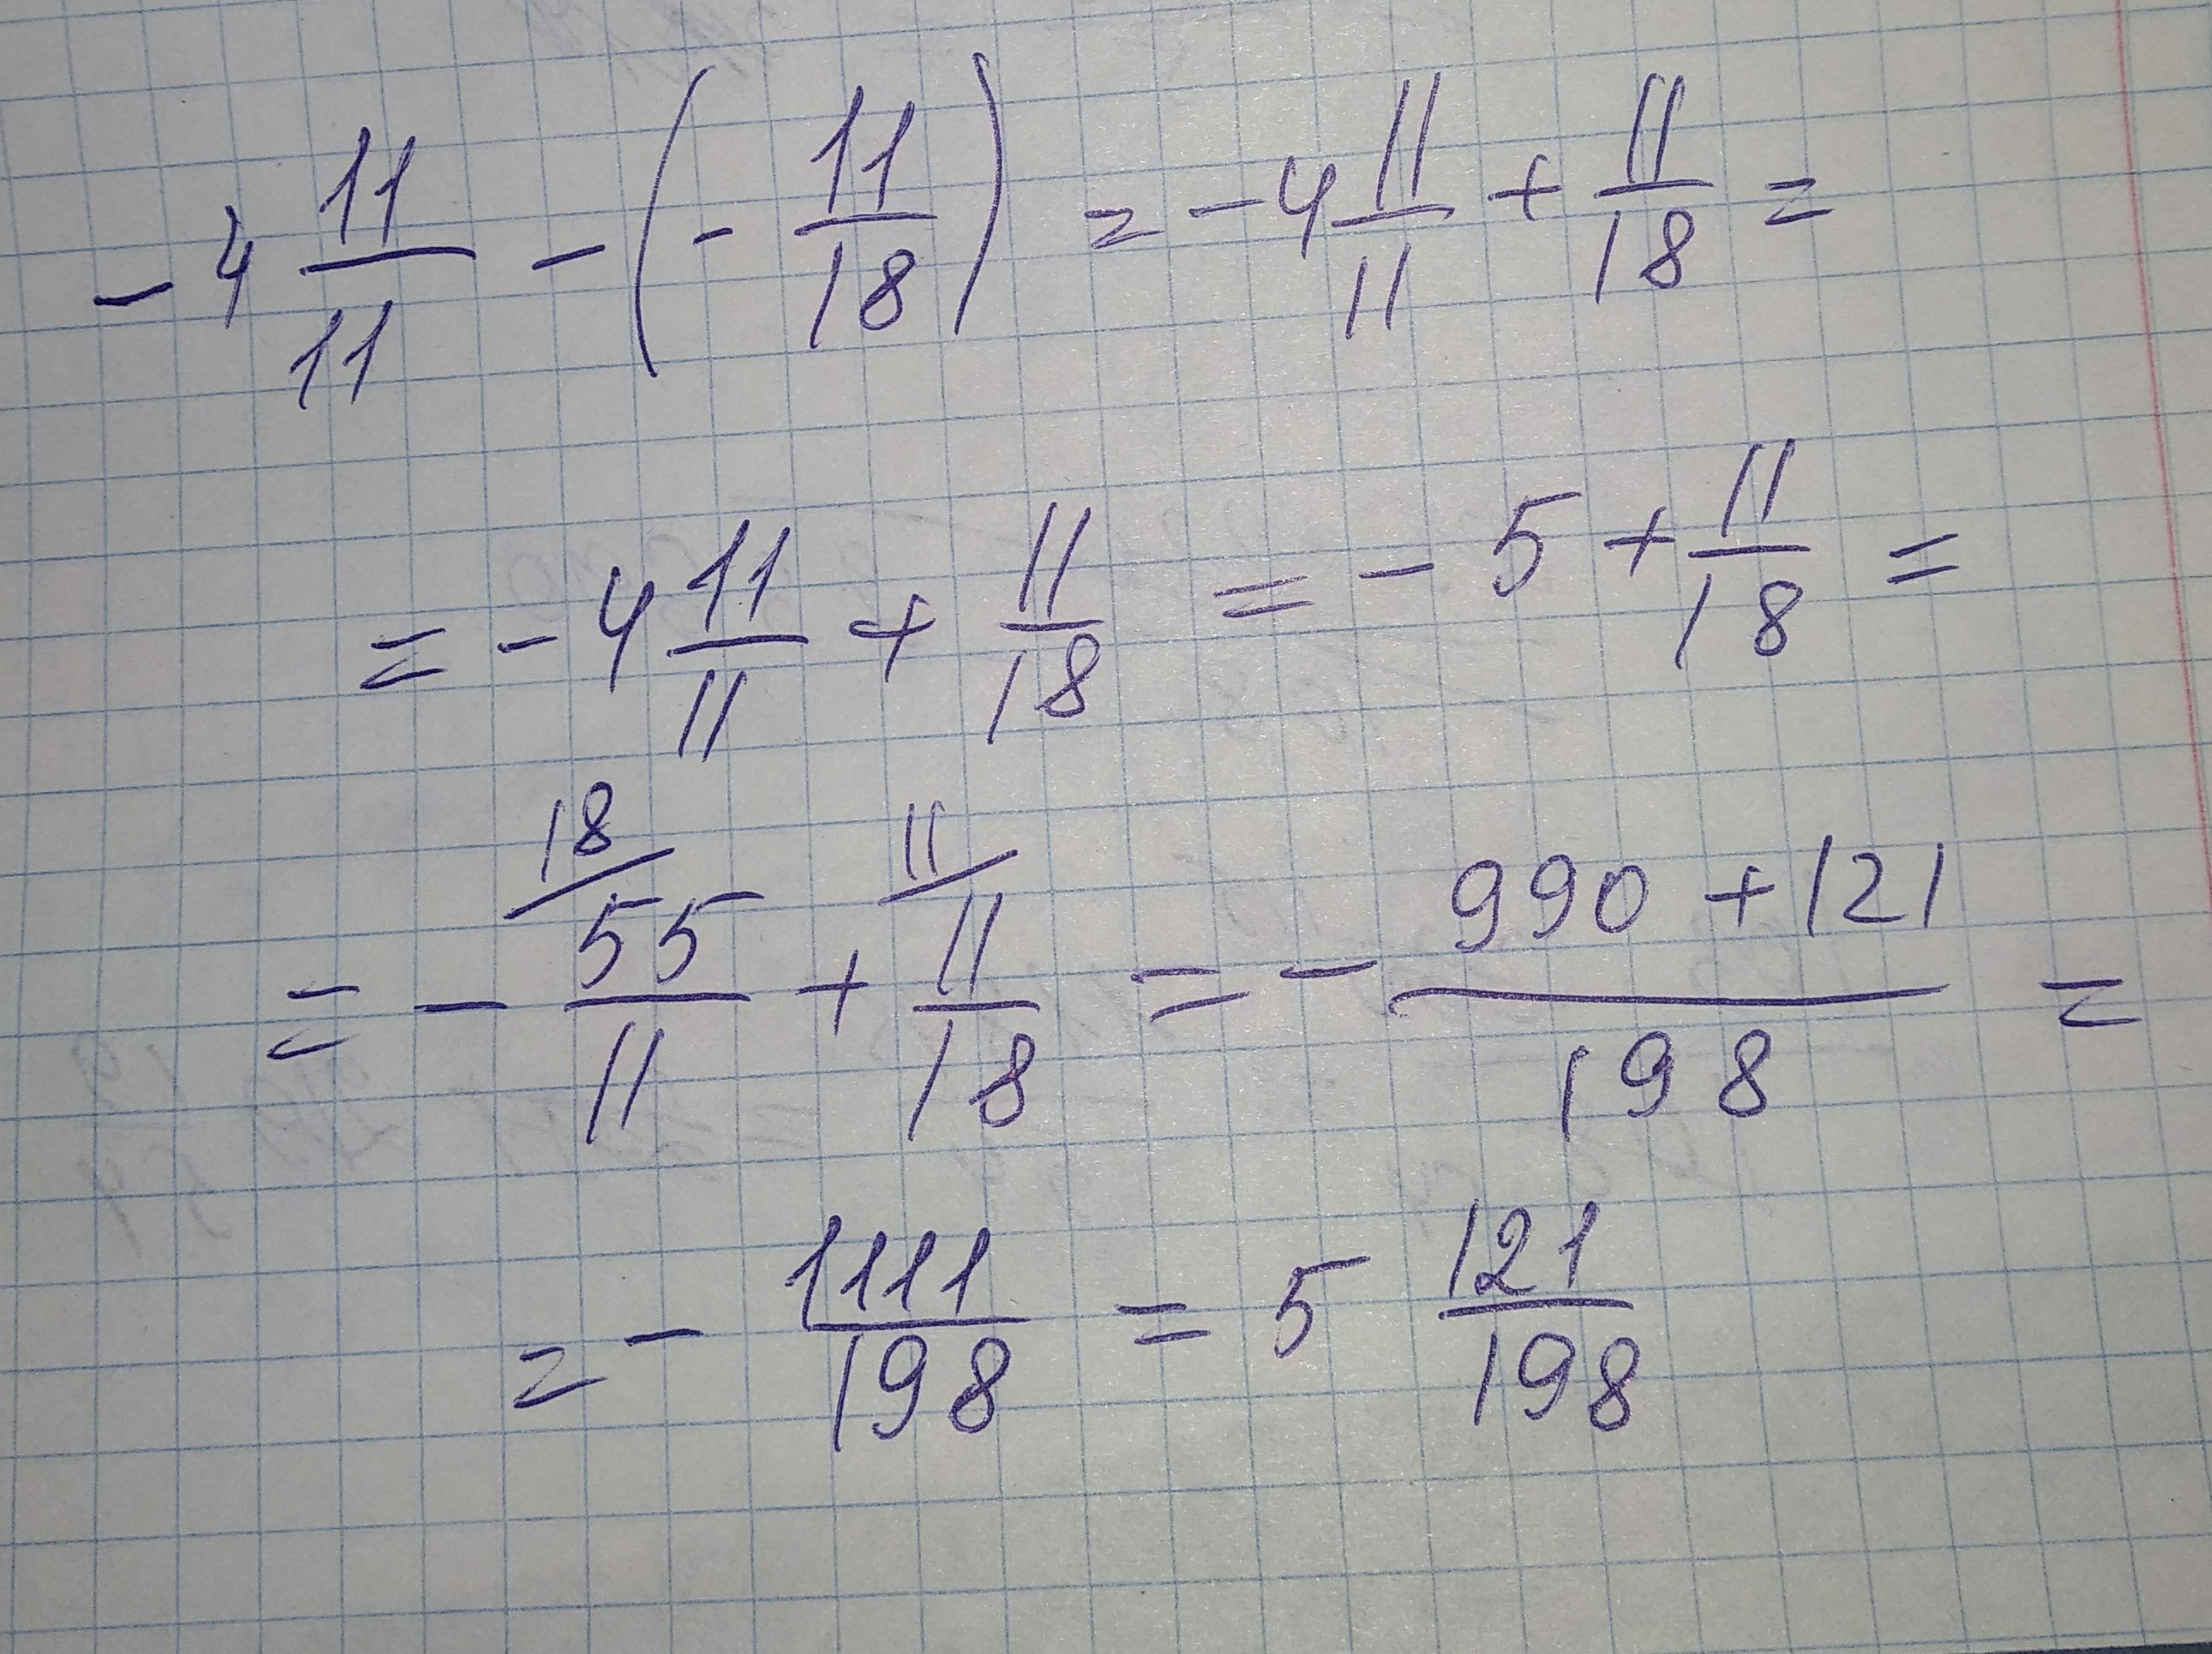 -4 11/11 - (- 11/18) = -4 11/11 + 11/18 =
= -4 11/11 + 11/18 = -5 + 11/18 =
= - 18/ 55/11 + 11/ 11/18 = - 990 + 121/198 =
= - 1111/198 = 5 121/198